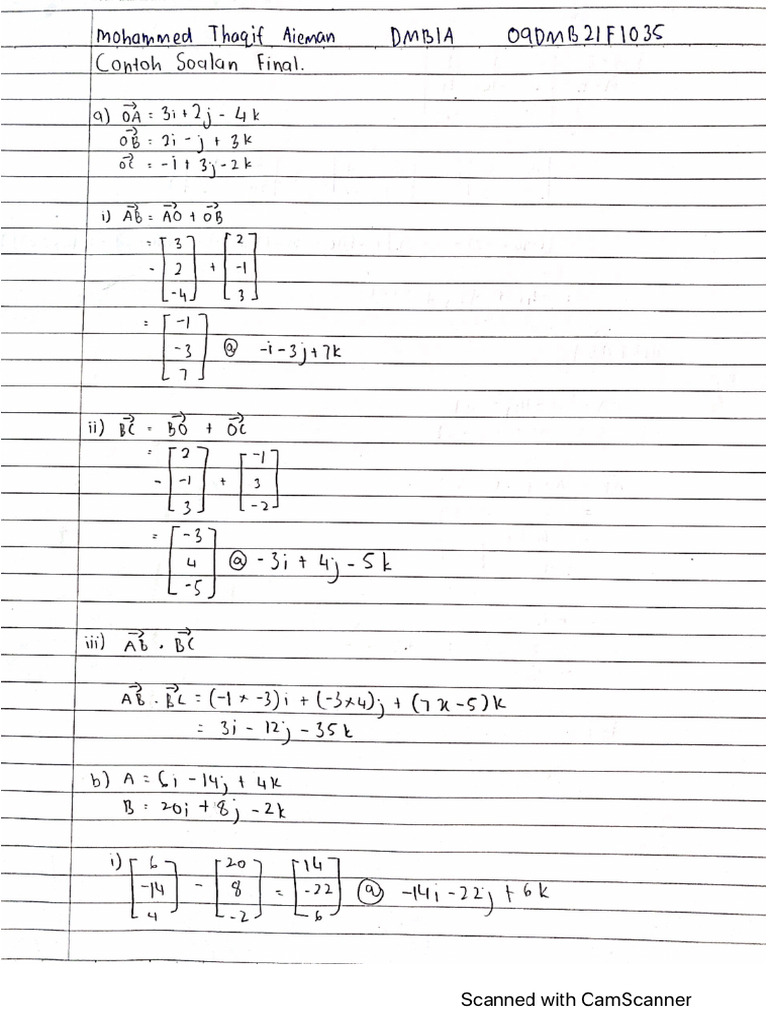 Mohammed Thaqif Aieman DMB1A 09DMB21F1035
Contoh Soalan Final.
a) OA⃗ = 3i + 2j - 4k
OB⃗ = 2i - j + 3k
OC⃗ = -i + 3j - 2k
i) AB⃗ = AO⃗ + OB⃗
= -[3 2 -4] + [2 -1 3]
= [-1 -3 7] @ -i - 3j + 7k
ii) BC⃗ = BO⃗ + OC⃗
= -[2 -1 3] + [-1 3 -2]
= [-3 4 -5] @ -3i + 4j - 5k
iii) AB⃗ . BC⃗
AB⃗ . BC⃗ = (-1 x -3)i + (-3x4)j + (7 x -5)k
= 3i - 12j - 35k
b) A = 6i - 14j + 4k
B = 20i + 8j - 2k
i) [6 -14 4] - [20 8 -2] = [14 -22 6] @ -14i - 22j + 6k
Scanned with CamScanner